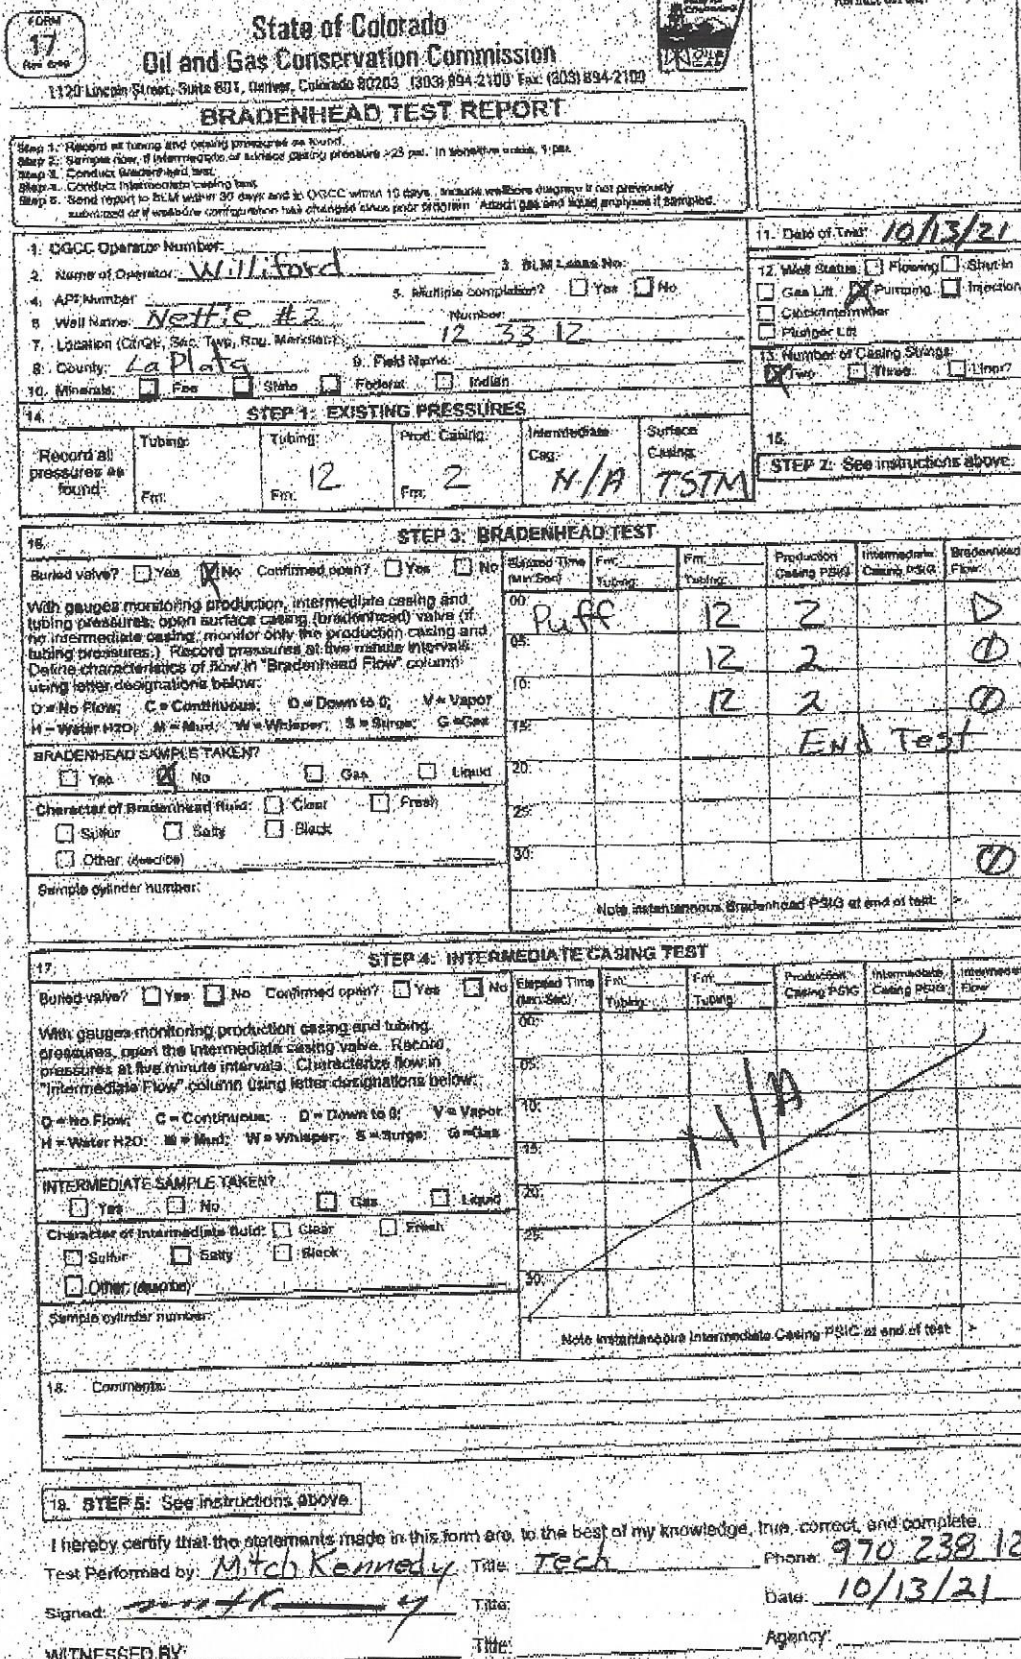 FORM
17
State of Colorado
Oil and Gas Conservation Commission
1120 Lincoln Street, Suite 801, Denver, Colorado 80203 (303) 894-2100 Fax: (303) 894-2109
BRADENHEAD TEST REPORT
Step 1. Record all tubing and casing pressures as found.
Step 2. Sample now, if intermediate or surface casing pressure >25 psi. In sensitive areas, 1 psi.
Step 3. Conduct Bradenhead test.
Step 4. Conduct intermediate casing test.
Step 5. Send report to BLM within 30 days and to OGCC within 10 days. Include wellbore diagram if not previously
submitted or if wellbore configuration has changed since prior program. Attach gas and liquid analyses if sampled.
1. OGCC Operator Number:
2. Name of Operator: Williford
3. BLM Lease No:
4. API Number
5. Multiple completion? Yes No
6. Well Name: Nettie #2 Number:
7. Location (QtrQtr, Sec, Twp, Rng, Meridian): 12 33 12
8. County: La Plata
9. Field Name:
10. Minerals: Fee State Federal Indian
11. Date of Test: 10/13/21
12. Well Status: Flowing Shut In
Gas Lift Pumping Injection
Clock/Intermitter
Plunger Lift
13. Number of Casing Strings:
Two Three Liner?
14. STEP 1: EXISTING PRESSURES
Record all pressures as found
Tubing: Fm:
Tubing: Fm: 12
Prod. Casing: Fm: 2
Intermediate Csg: N/A
Surface Casing: TSTM
15.
STEP 2: See instructions above.
16. STEP 3: BRADENHEAD TEST
Buried valve? Yes No Confirmed open? Yes No
With gauges monitoring production, intermediate casing and
tubing pressures, open surface casing (bradenhead) valve (if
no intermediate casing, monitor only the production casing and
tubing pressures.) Record pressures at five minute intervals.
Define characteristics of flow in "Bradenhead Flow" column
using letter designations below:
O = No Flow; C = Continuous; D = Down to 0; V = Vapor
H = Water H2O; M = Mud; W = Whisper; S = Surge; G = Gas
BRADENHEAD SAMPLE TAKEN?
Yes No Gas Liquid
Character of Bradenhead fluid: Clear Fresh
Sulfur Salty Black
Other: (describe)
Sample cylinder number:
Elapsed Time (Min:Sec) Fm: Tubing: Fm: Tubing: Production Casing PSIG Intermediate Casing PSIG Bradenhead Flow:
00: Puff 12 2 D
05: 12 2
10: 12 2
15: End Test
20:
25:
30:
Note instantaneous Bradenhead PSIG at end of test: >
17. STEP 4: INTERMEDIATE CASING TEST
Buried valve? Yes No Confirmed open? Yes No
With gauges monitoring production casing and tubing
pressures, open the intermediate casing valve. Record
pressures at five minute intervals. Characterize flow in
"Intermediate Flow" column using letter designations below:
O = No Flow; C = Continuous; D = Down to 0; V = Vapor
H = Water H2O; M = Mud; W = Whisper; S = Surge; G = Gas
INTERMEDIATE SAMPLE TAKEN?
Yes No Gas Liquid
Character of Intermediate fluid: Clear Fresh
Sulfur Salty Black
Other: (describe)
Sample cylinder number:
Elapsed Time (Min:Sec) Fm: Tubing: Fm: Tubing: Production Casing PSIG Intermediate Casing PSIG Intermediate Flow
00:
05:
10:
N/A
15:
20:
25:
30:
Note instantaneous Intermediate Casing PSIG at end of test >
18. Comments:
19. STEP 5: See instructions above.
I hereby certify that the statements made in this form are, to the best of my knowledge, true, correct, and complete.
Test Performed by: Mitch Kennedy Title: Tech Phone: 970 238 12
Signed: Title: Date: 10/13/21
WITNESSED BY: Title: Agency: